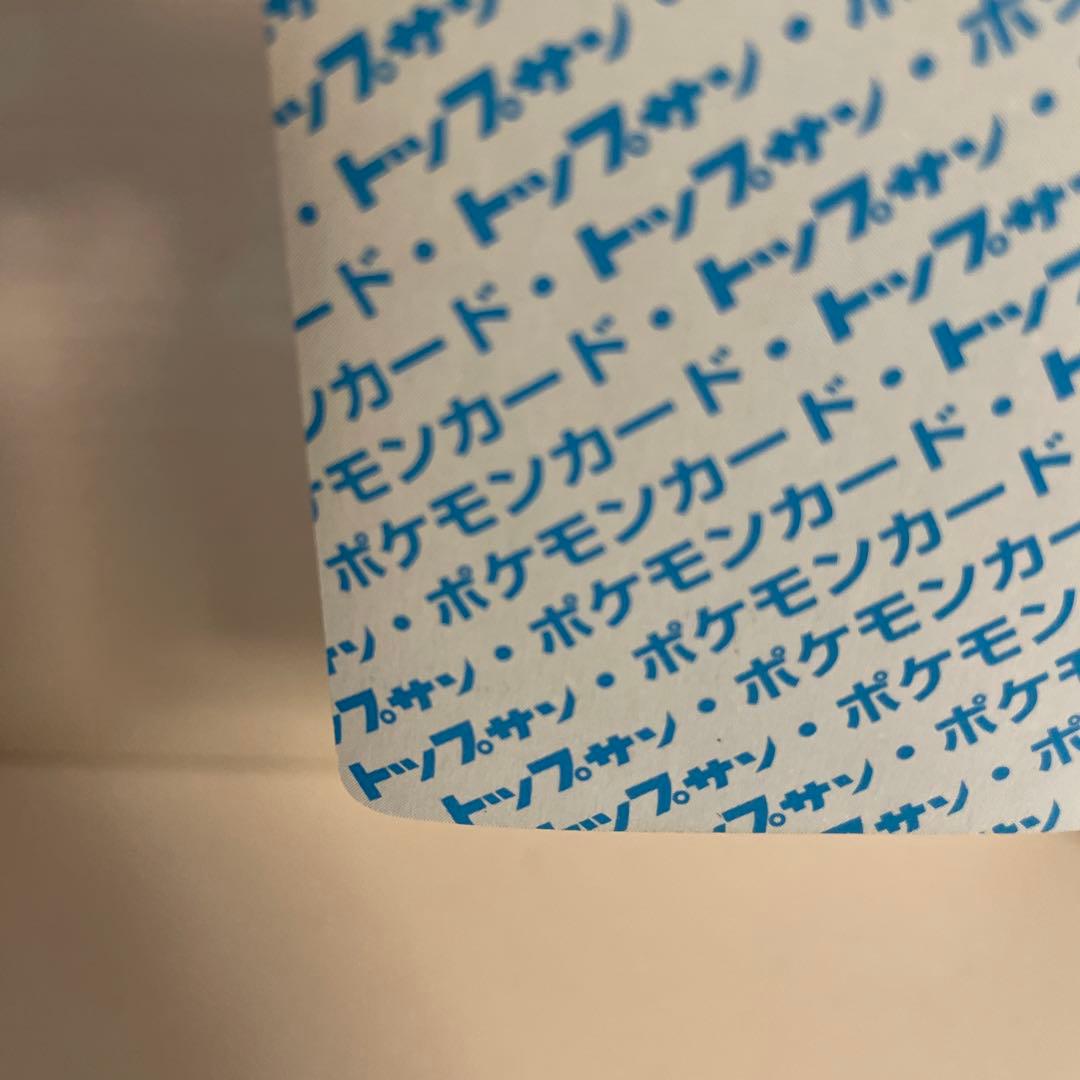 ップサン
・トップサン・ポ
ード・トップサン・ポ
ンカード・トップサン・
ケモンカード・トップサン
ポケモンカード・トップサ
ン・ポケモンカード・トップ
プサン・ポケモンカード・ト
トップサン・ポケモンカード
トップサン・ポケモンカー
トップサン・ポケモン
プサン・ポケモ
サン・ポ